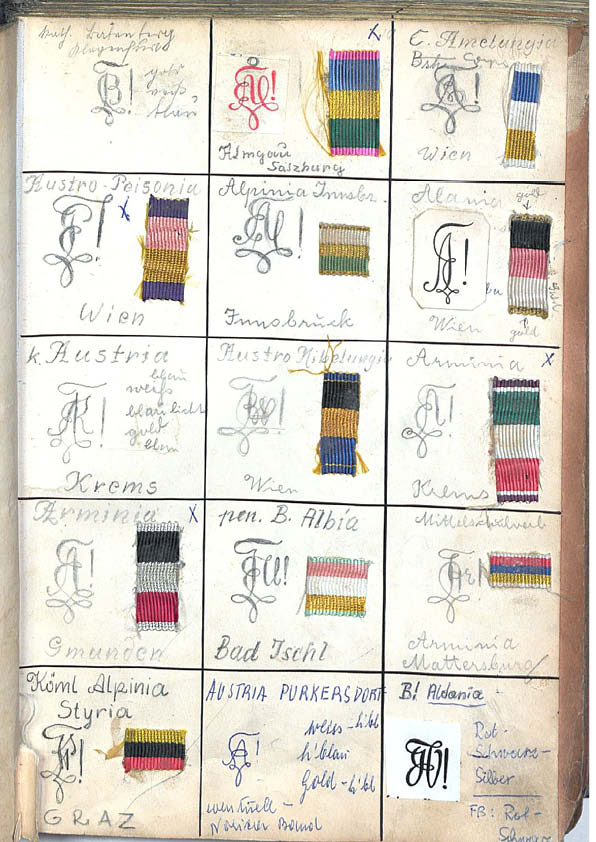 gold
weiß
blau
Almgau
Salzburg
C. Amelungia
Wien
Austro-Peisonia
Wien
Alpinia Innsbr.
Innsbruck
Alania
gold
Wien
gold
k. Austria
blau
weiß
blau licht
gold
blau
Krems
Austro Nibelungia
Wien
Arminia
Krems
Arminia
Gmunden
pen. B. Albia
Bad Ischl
Arminia
Mattersburg
Köml Alpinia
Styria
GRAZ
AUSTRIA PURKERSDORF
weiss - h'bl
h'blau
Gold - h'bl
eventuell -
Band
B! Aldania
Rot-
Schwarz-
Silber
FB: Rot-
Schwarz